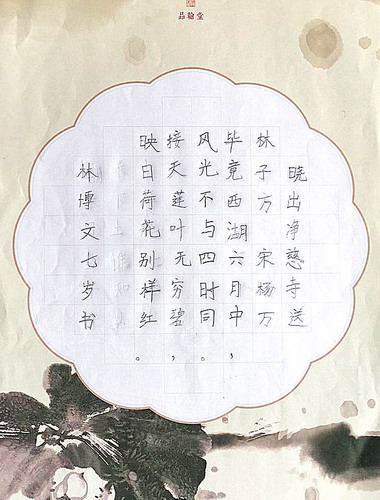 品翰堂
晓出净慈寺送
林子方 宋杨万
毕竟西湖六月中，
风光不与四时同。
接天莲叶无穷碧，
映白荷花别样红。
林博文七岁书